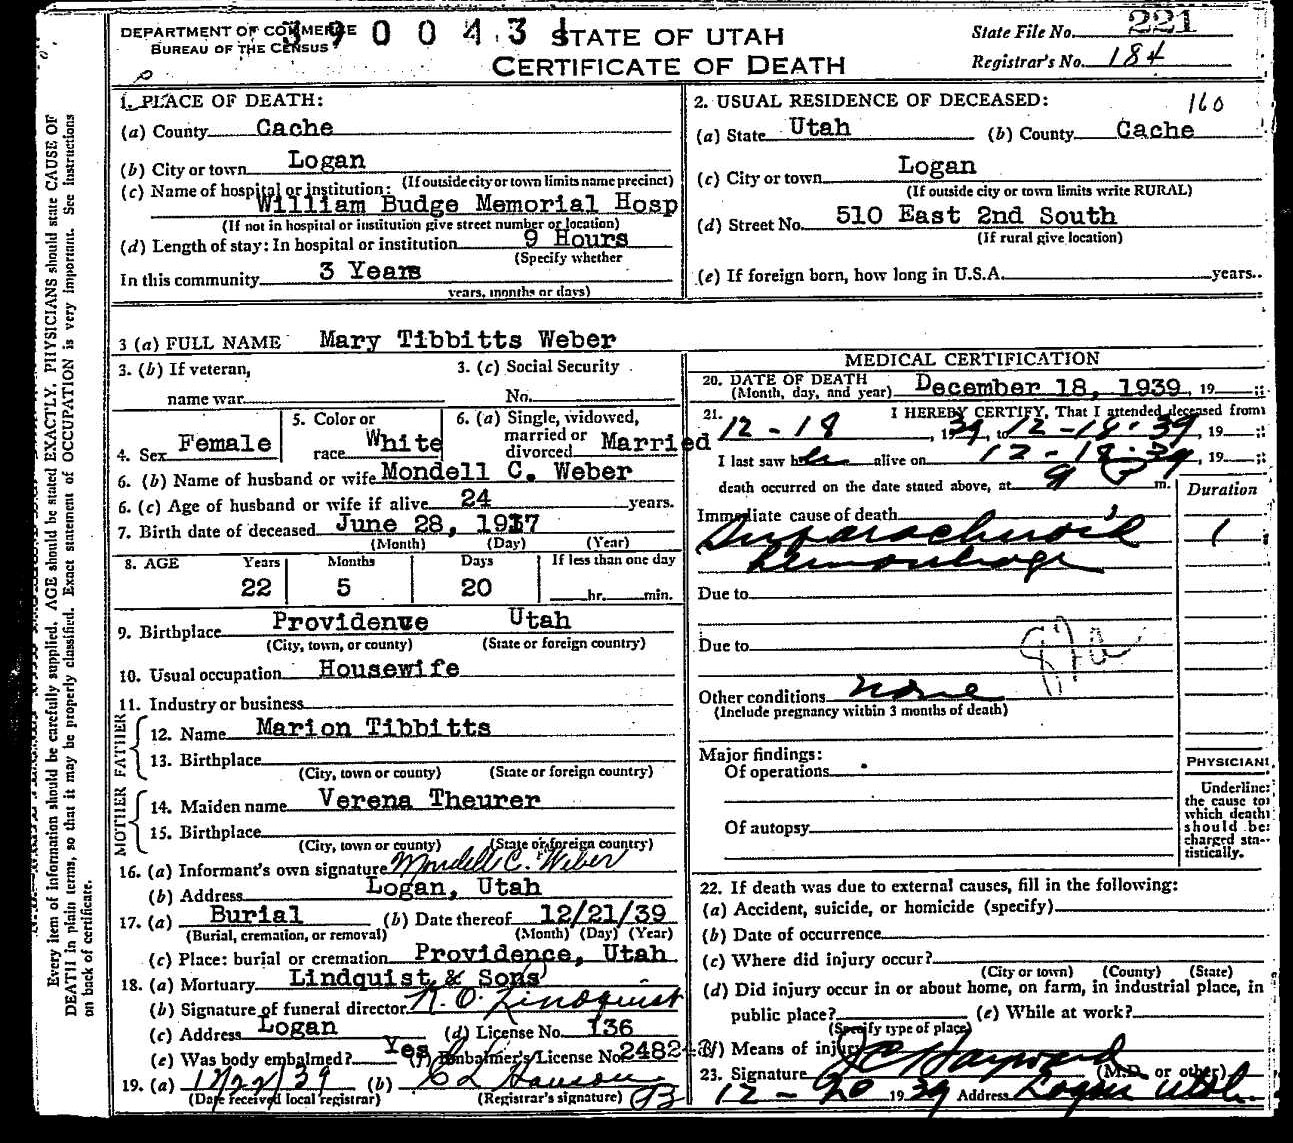 DEPARTMENT OF COMMERCE
BUREAU OF THE CENSUS
390043
STATE OF UTAH
CERTIFICATE OF DEATH
State File No. 221
Registrar's No. 184
1. PLACE OF DEATH:
(a) County Cache
(b) City or town Logan
(If outside city or town limits name precinct)
(c) Name of hospital or institution:
William Budge Memorial Hosp
(If not in hospital or institution give street number or location)
(d) Length of stay: In hospital or institution 9 Hours
(Specify whether
In this community 3 Years
years, months or days)
2. USUAL RESIDENCE OF DECEASED: 160
(a) State Utah (b) County Cache
(c) City or town Logan
(If outside city or town limits write RURAL)
(d) Street No. 510 East 2nd South
(If rural give location)
(e) If foreign born, how long in U.S.A. years.
3 (a) FULL NAME Mary Tibbitts Weber
3. (b) If veteran, 3. (c) Social Security
name war No.
4. Sex Female 5. Color or race White 6. (a) Single, widowed, married or divorced Married
6. (b) Name of husband or wife Mondell C. Weber
6. (c) Age of husband or wife if alive 24 years.
7. Birth date of deceased June 28, 1917
(Month) (Day) (Year)
8. AGE Years Months Days If less than one day
22 5 20 hr. min.
9. Birthplace Providence Utah
(City, town, or county) (State or foreign country)
10. Usual occupation Housewife
11. Industry or business
FATHER
12. Name Marion Tibbitts
13. Birthplace
(City, town or county) (State or foreign country)
MOTHER
14. Maiden name Verena Theurer
15. Birthplace
(City, town or county) (State or foreign country)
16. (a) Informant's own signature Mondell C. Weber
(b) Address Logan, Utah
17. (a) Burial (b) Date thereof 12/21/39
(Burial, cremation, or removal) (Month) (Day) (Year)
(c) Place: burial or cremation Providence, Utah
18. (a) Mortuary Lindquist & Sons
(b) Signature of funeral director N. O. Lindquist
(c) Address Logan (d) License No. 136
(e) Was body embalmed? Yes (f) Embalmer's License No. 248
19. (a) 12/22/39 (b) C L Hanson
(Date received local registrar) (Registrar's signature)
MEDICAL CERTIFICATION
20. DATE OF DEATH
(Month, day, and year) December 18, 1939, 19
21. I HEREBY CERTIFY, That I attended deceased from
12-18, 1939, to 12-18-39, 19
I last saw her alive on 12-18-39, 19
death occurred on the date stated above, at 9 m.
Duration
Immediate cause of death
Subarachnoid 1
hemorrhage
Due to
Due to
Other conditions none
(Include pregnancy within 3 months of death)
Major findings:
Of operations
Of autopsy
PHYSICIAN
Underline
the cause to
which death
should be
charged sta-
tistically.
22. If death was due to external causes, fill in the following:
(a) Accident, suicide, or homicide (specify)
(b) Date of occurrence
(c) Where did injury occur?
(City or town) (County) (State)
(d) Did injury occur in or about home, on farm, in industrial place, in
public place? (e) While at work?
(Specify type of place)
(f) Means of injury
23. Signature J C Hayward (M.D. or other)
12-20 1939 Address Logan Utah
Every item of information should be carefully supplied. AGE should be stated EXACTLY. PHYSICIANS should state CAUSE OF
DEATH in plain terms, so that it may be properly classified. Exact statement of OCCUPATION is very important. See instructions
on back of certificate.